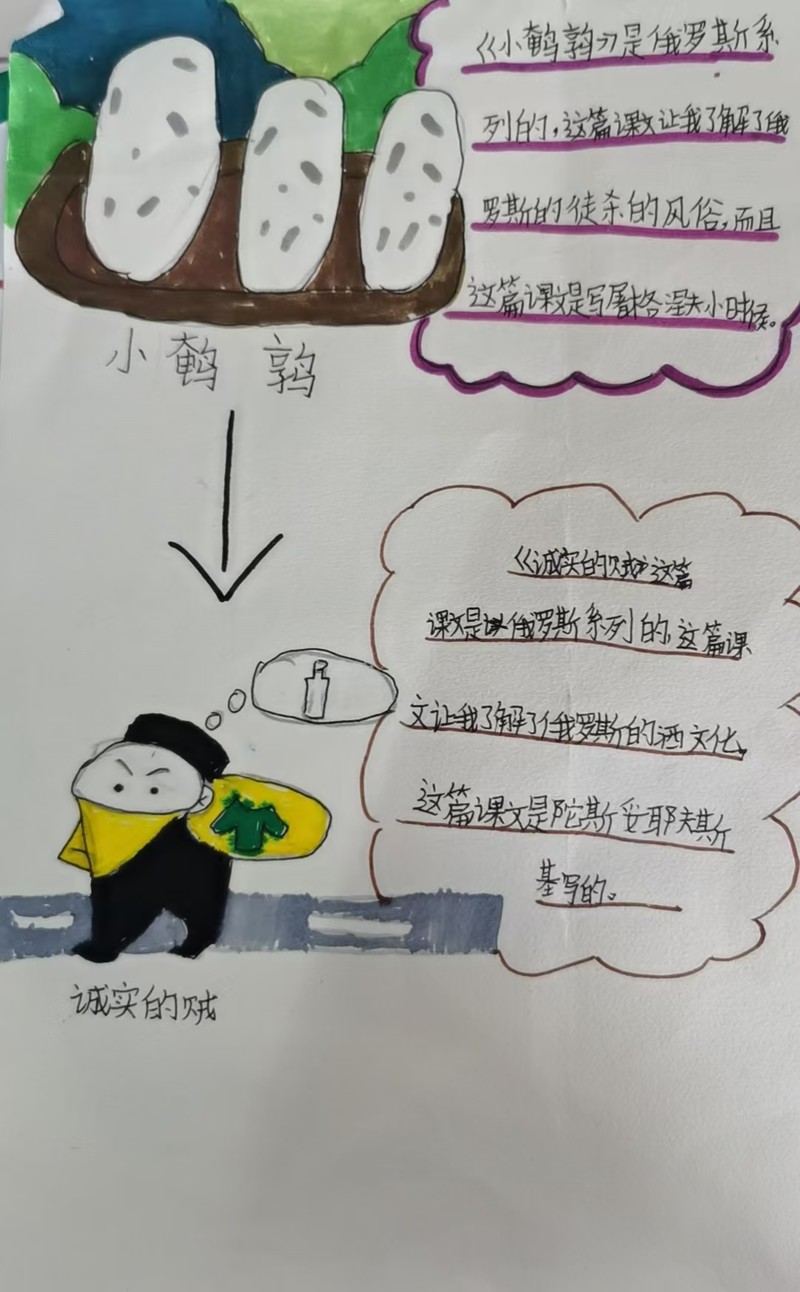 《小鹌鹑》是俄罗斯系
列的，这篇课文让我了解了俄
罗斯的徒杀的风俗，而且
这篇课文是写屠格涅夫小时候。
小鹌鹑
《诚实的贼》这篇
课文是俄罗斯系列的，这篇课
文让我了解了俄罗斯的酒文化，
这篇课文是陀斯妥耶夫斯
基写的。
诚实的贼